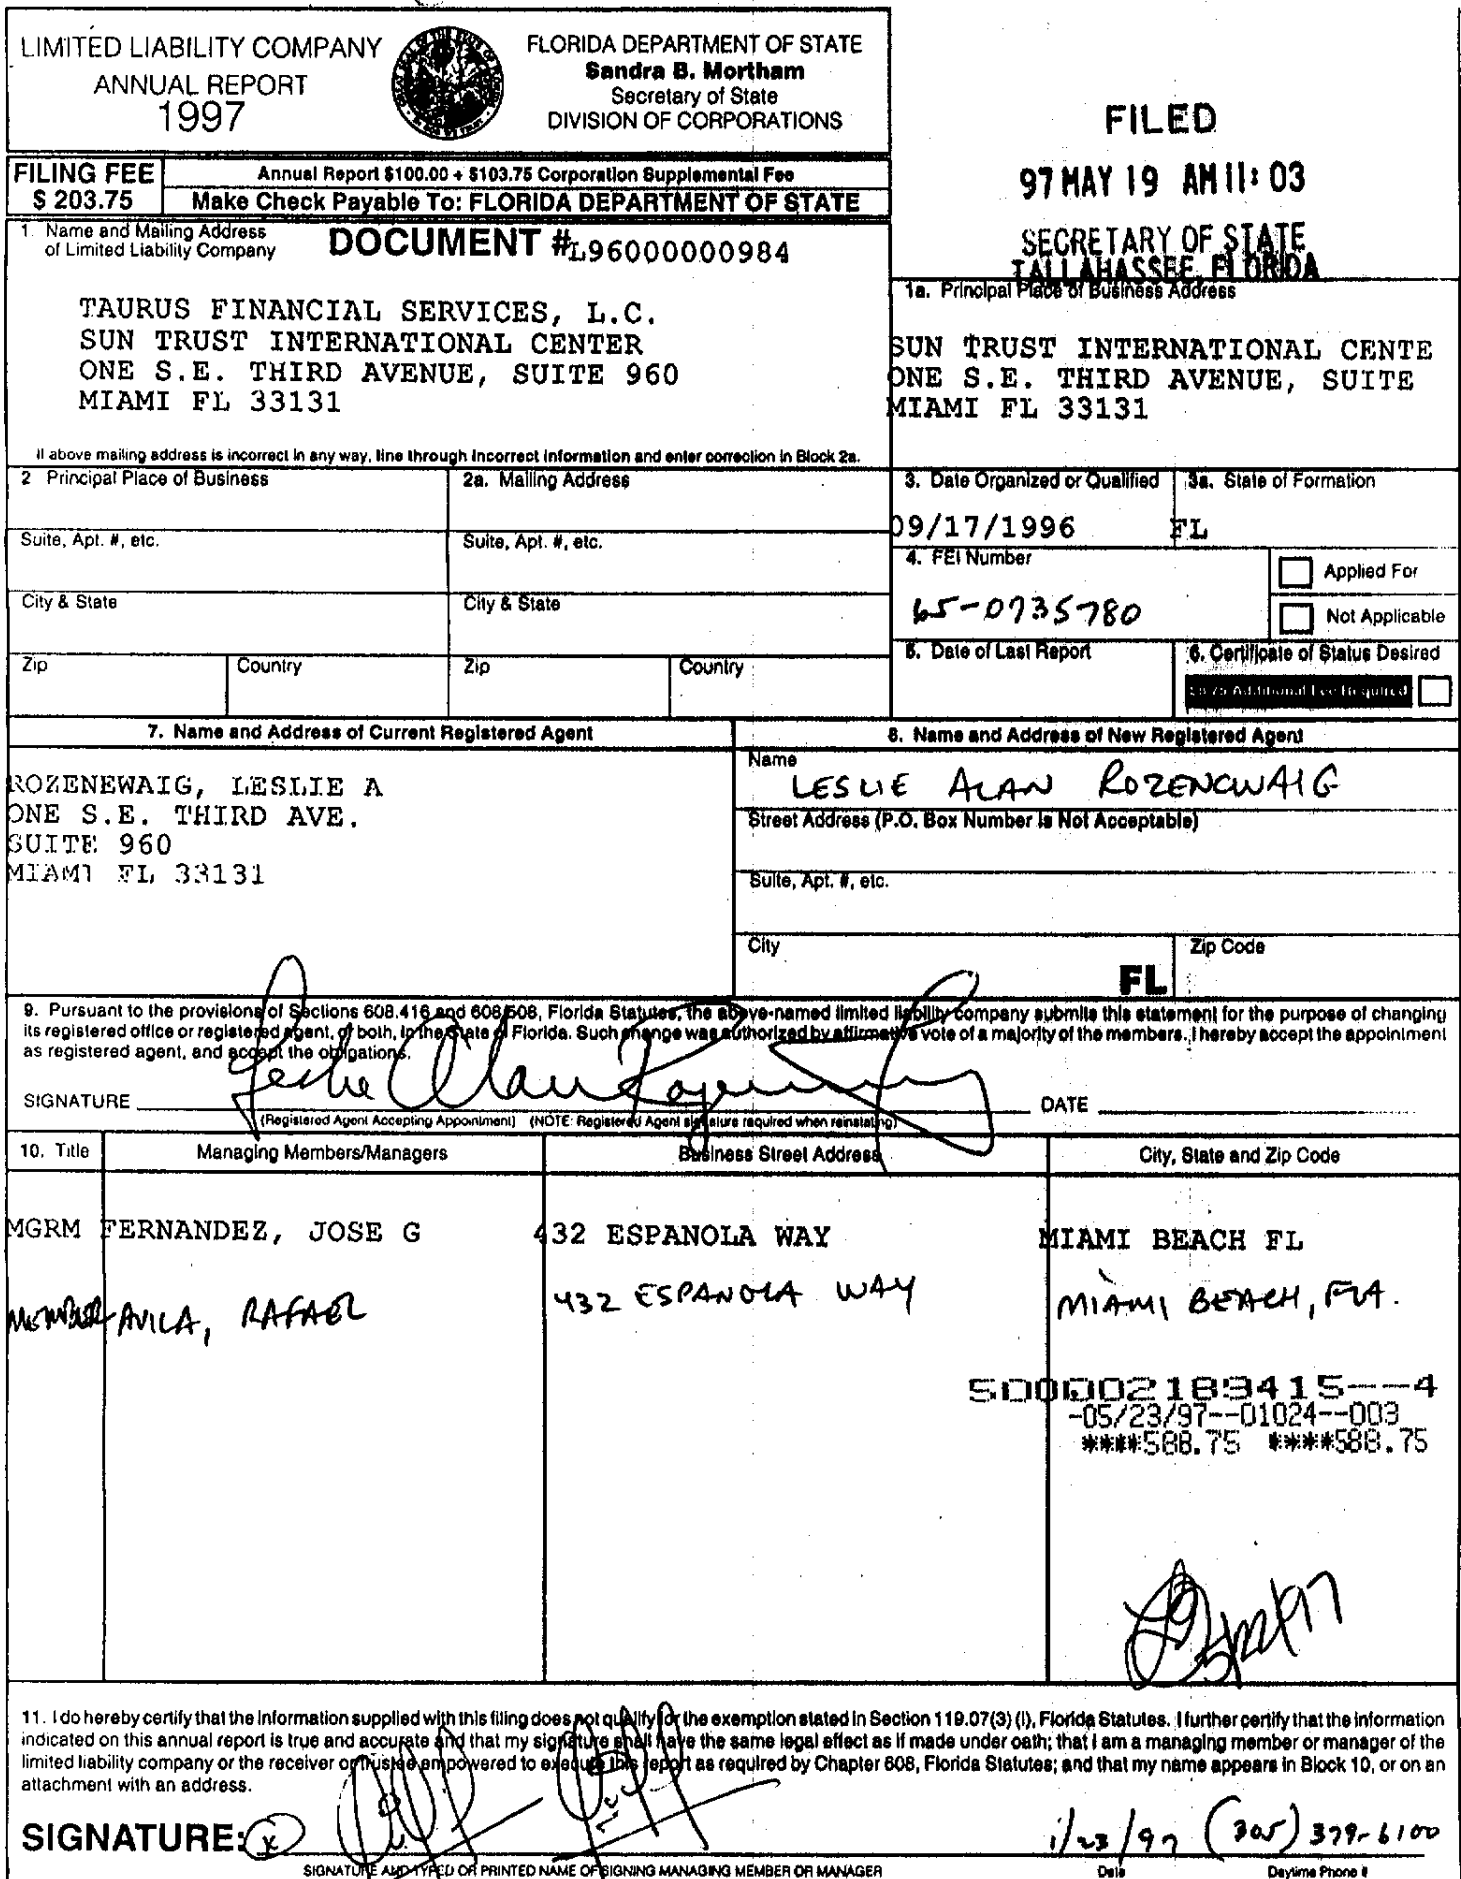 LIMITED LIABILITY COMPANY
ANNUAL REPORT
1997
FLORIDA DEPARTMENT OF STATE
Sandra B. Mortham
Secretary of State
DIVISION OF CORPORATIONS
FILED
97 MAY 19 AM 11:03
SECRETARY OF STATE
TALLAHASSEE, FLORIDA
FILING FEE
$ 203.75
Annual Report $100.00 + $103.75 Corporation Supplemental Fee
Make Check Payable To: FLORIDA DEPARTMENT OF STATE
1. Name and Mailing Address
of Limited Liability Company
DOCUMENT #L96000000984
TAURUS FINANCIAL SERVICES, L.C.
SUN TRUST INTERNATIONAL CENTER
ONE S.E. THIRD AVENUE, SUITE 960
MIAMI FL 33131
If above mailing address is incorrect in any way, line through incorrect information and enter correction in Block 2a.
1a. Principal Place of Business Address
SUN TRUST INTERNATIONAL CENTE
ONE S.E. THIRD AVENUE, SUITE
MIAMI FL 33131
2 Principal Place of Business
2a. Mailing Address
Suite, Apt. #, etc.
Suite, Apt. #, etc.
City & State
City & State
Zip
Country
Zip
Country
3. Date Organized or Qualified
09/17/1996
3a. State of Formation
FL
4. FEI Number
65-0735780
Applied For
Not Applicable
5. Date of Last Report
6. Certificate of Status Desired
$8.75 Additional Fee Required
7. Name and Address of Current Registered Agent
ROZENEWAIG, LESLIE A
ONE S.E. THIRD AVE.
SUITE 960
MIAMI FL 33131
8. Name and Address of New Registered Agent
Name
LESLIE ALAN ROZENCWAIG
Street Address (P.O. Box Number Is Not Acceptable)
Suite, Apt. #, etc.
City
FL
Zip Code
9. Pursuant to the provisions of Sections 608.416 and 608.508, Florida Statutes, the above-named limited liability company submits this statement for the purpose of changing
its registered office or registered agent, or both, in the State of Florida. Such change was authorized by affirmative vote of a majority of the members. I hereby accept the appointment
as registered agent, and accept the obligations.
SIGNATURE
Leslie Alan Rozencwaig
DATE
(Registered Agent Accepting Appointment) (NOTE: Registered Agent signature required when reinstating)
10. Title
Managing Members/Managers
Business Street Address
City, State and Zip Code
MGRM FERNANDEZ, JOSE G 432 ESPANOLA WAY MIAMI BEACH FL
MEMBER AVILA, RAFAEL 432 ESPANOLA WAY MIAMI BEACH, FLA.
500002183415--4
-05/23/97--01024--003
****588.75 ****588.75
5/22/97
11. I do hereby certify that the information supplied with this filing does not qualify for the exemption stated in Section 119.07(3) (i), Florida Statutes. I further certify that the information
indicated on this annual report is true and accurate and that my signature shall have the same legal effect as if made under oath; that I am a managing member or manager of the
limited liability company or the receiver or trustee empowered to execute this report as required by Chapter 608, Florida Statutes; and that my name appears in Block 10, or on an
attachment with an address.
SIGNATURE: X
1/23/97 (305) 379-6100
SIGNATURE AND TYPED OR PRINTED NAME OF SIGNING MANAGING MEMBER OR MANAGER
Date
Daytime Phone #